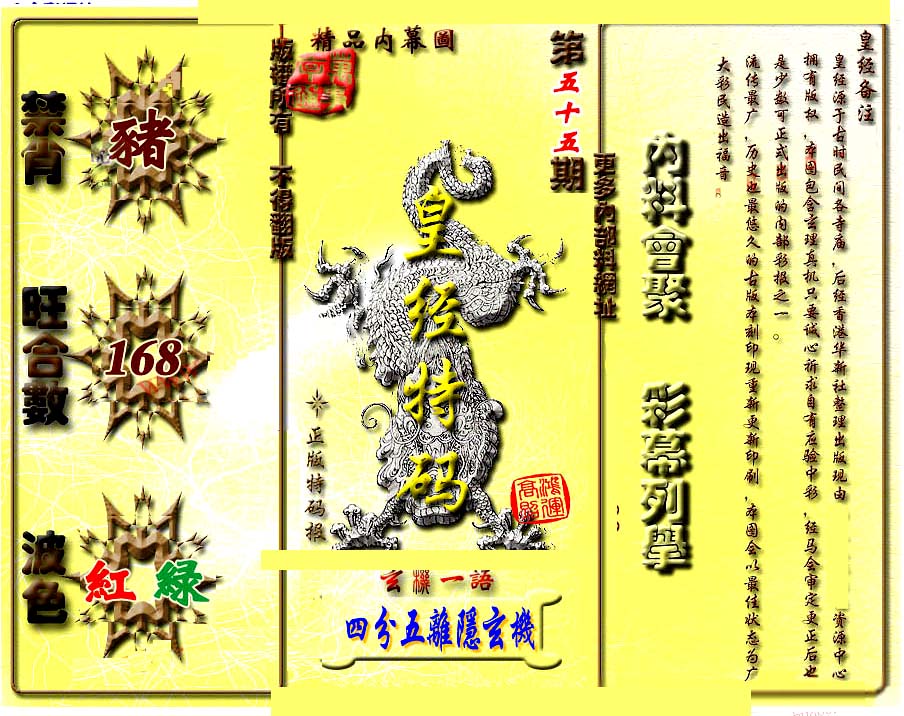 精品内幕圖
第五十五期
版權所有 不得翻版
皇经特码
正版特码报
鴻運高照
玄機一語
四分五離隱玄機
禁肖
豬
旺合數
168
波色
紅 緑
更多內部料網址
內料會聚 彩幕列舉
皇经备注
皇经源于古时民间各寺庙，后经香港华新社整理出版现由 资源中心
拥有版权，本图包含玄理真机只要诚心祈求自有应验中彩，经马会审定更正后也
是少数可正式出版的内部彩报之一。
流传最广，历史也最悠久的古版本刻印现重新更新印刷，本图会以最佳状态为广
大彩民造出福音。